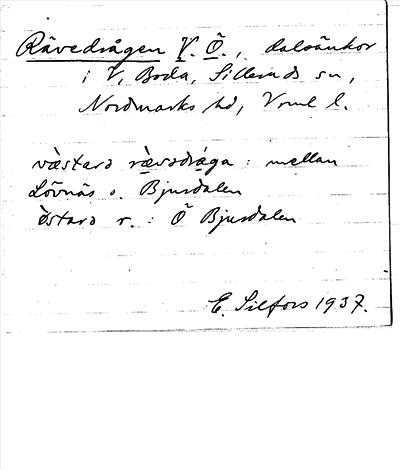 Rävedrågen V. Ö., dalsänkor
i V. Boda, Silleruds sn,
Nordmarks hd, Vrml l.
västara rävedråga : mellan
Lövnäs o. Bjursdalen
östara r. : Ö Bjursdalen
E. Silfors 1937.